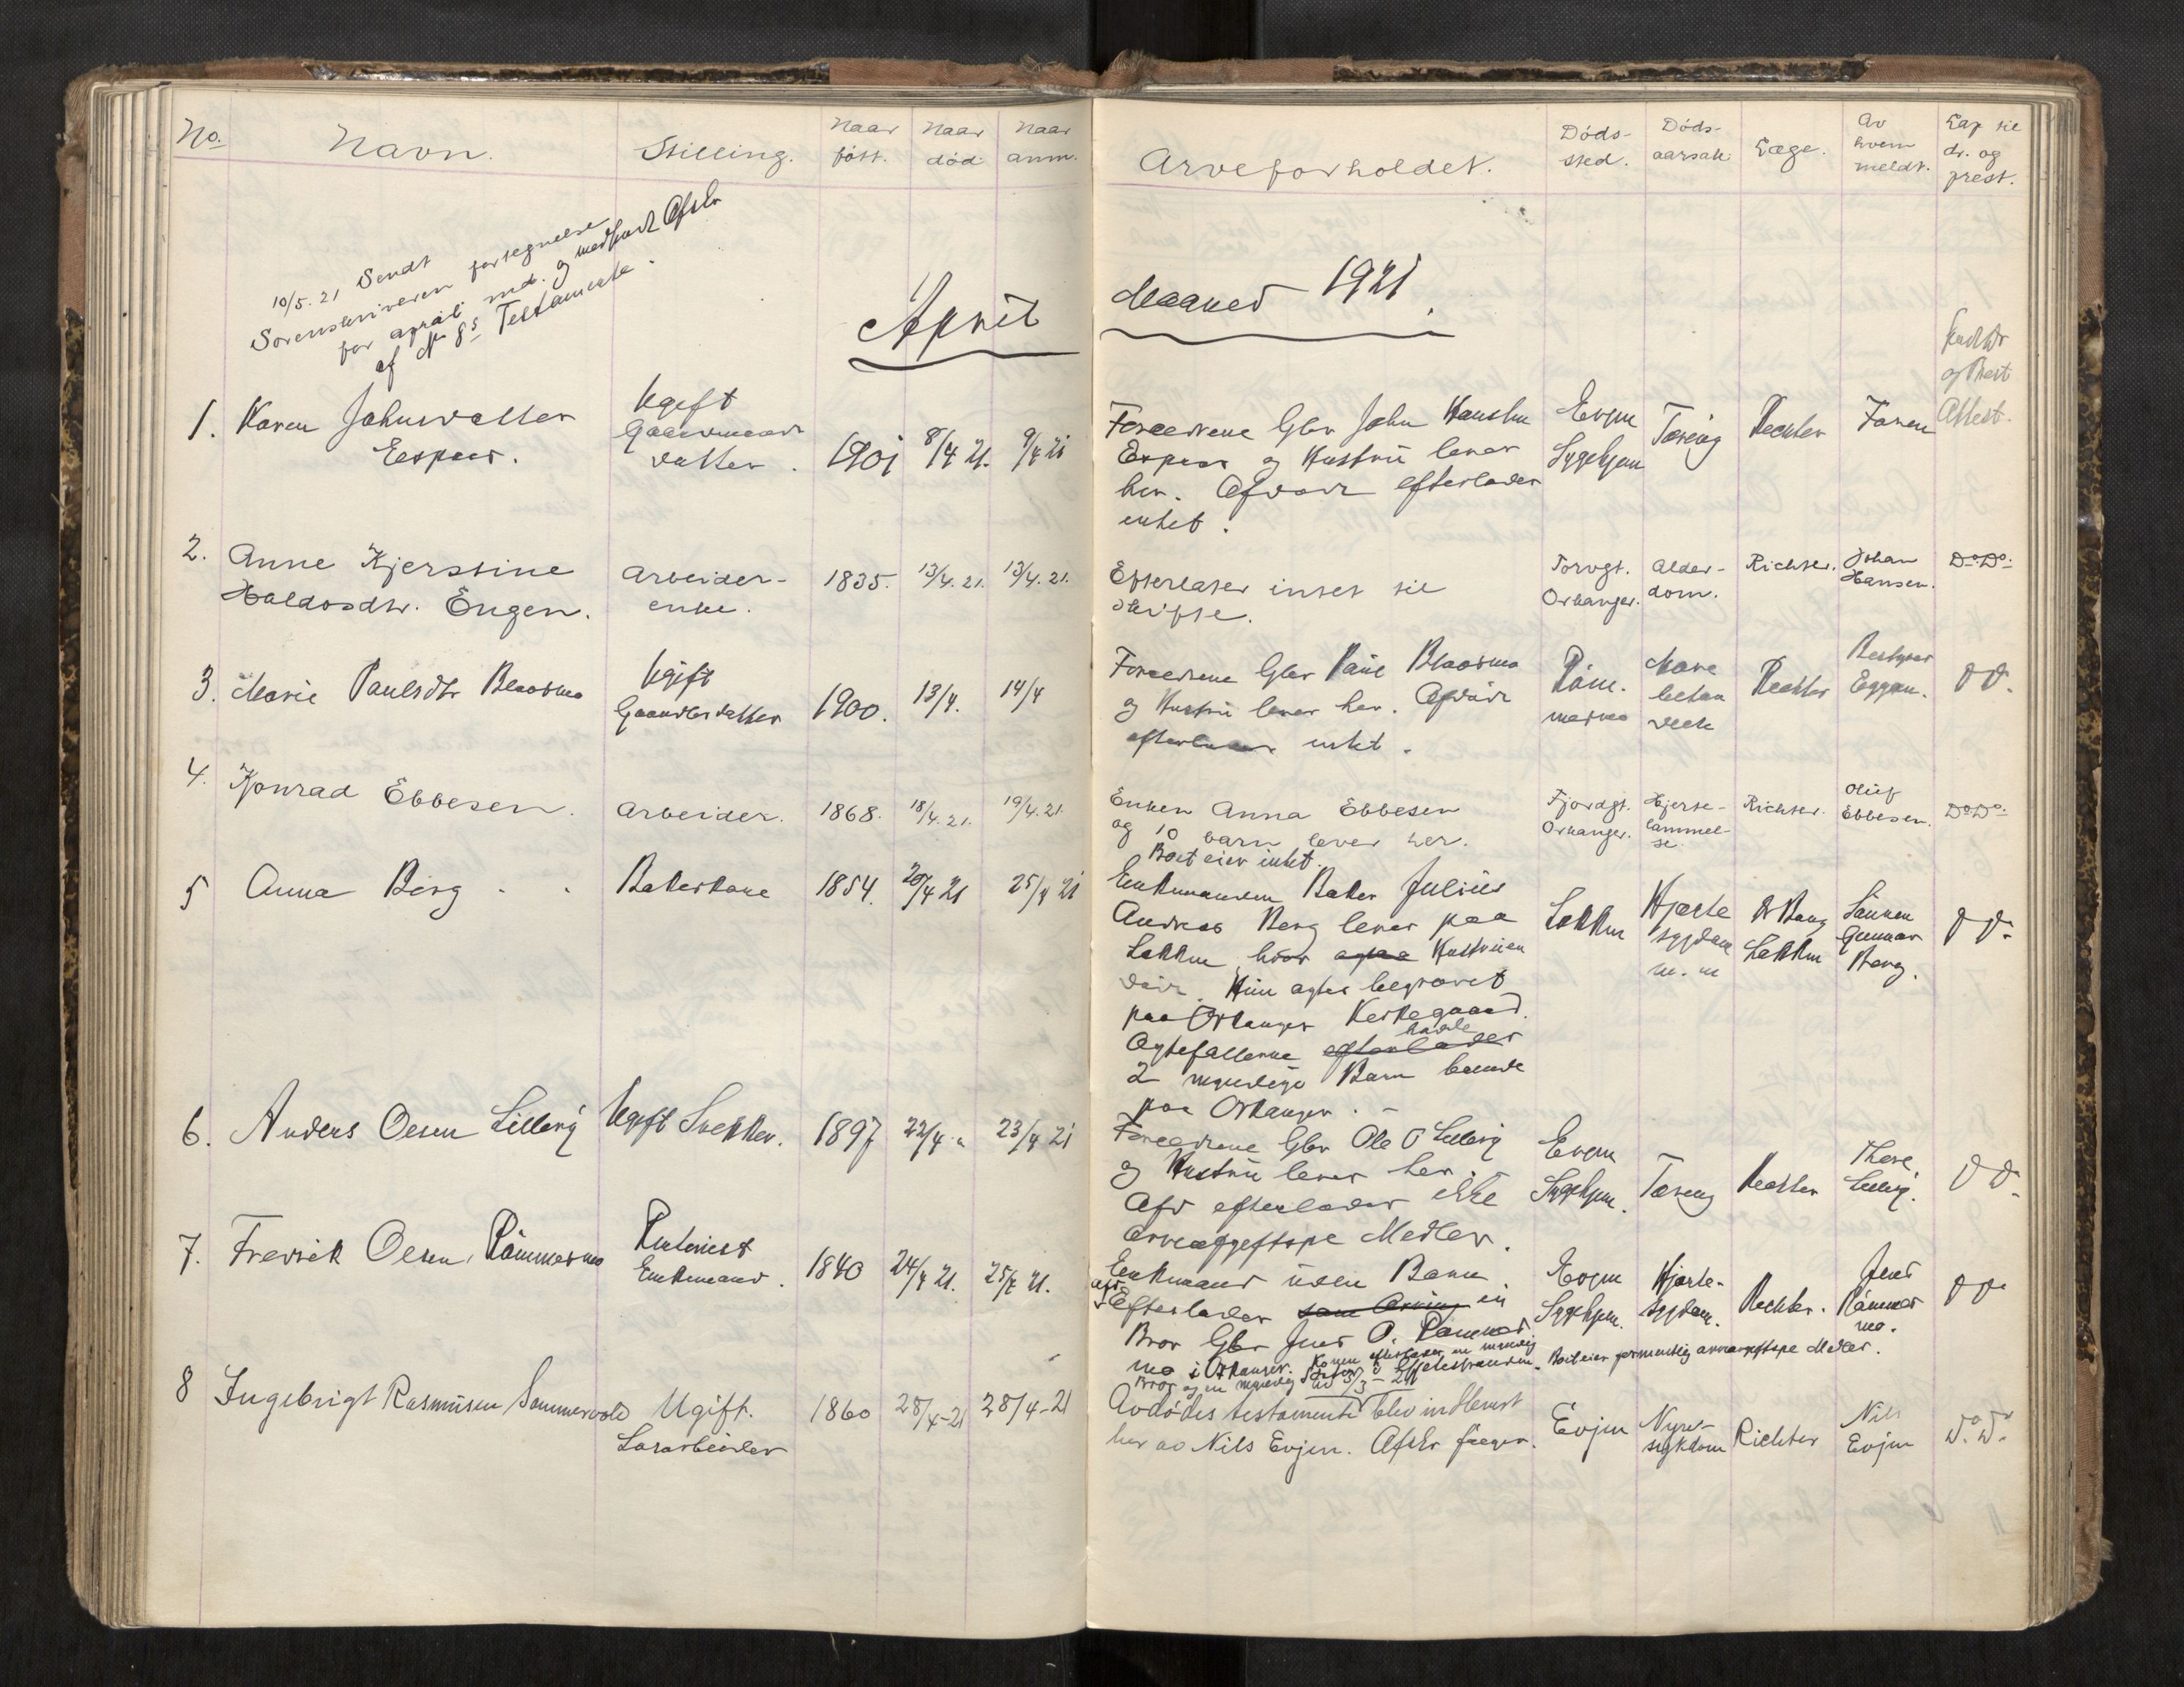 No. Navn. Stilling. Naar født. Naar død. Naar anm.
10/5. 21 Sendt
Sorenskriveren fortegnelse
for april md. og medsendt Afskr
af No 8s Testamente.
April
1. Karen Johnsdatter Espaas. Ugift Gaardmands datter. 1901 8/4 21. 9/4 21
2. Anne Kjerstine Haldosdtr. Engen. Arbeider-enke. 1835. 13/4. 21. 13/4. 21.
3. Marie Paulsdtr Blaasmo Ugift Gaardbrdatter 1900. 13/4. 14/4
4. Konrad Ebbesen. Arbeider. 1868. 18/4. 21. 19/4. 21.
5 Anna Berg Bakerkone 1854. 20/4 21 25/4 21
6. Anders Olsen Lillevig Ugift Snekker. 1897 22/4 " 23/4 21
7. Fredrik Olsen Rømmesmo Enkemand. 1840 24/4 21. 25/4 21.
8 Ingebrigt Rasmusen Sommervold Ugift. Løsarbeider 1860 28/4-21 28/4-21
Arveforholdet. Døds-sted. Døds-aarsak Læge. Av hvem meldt. Eap til dr. og prest.
Maaned 1921.
og Prest
Attest.
Forældrene Gbr John
Espaas og Hustru lever
her. Afdøde efterlader
intet.
Evjen Sygehjem Tæring Richter Faren
Efterlater intet til
skifte.
Torvgt. Orkanger. Alder-dom. Richter. Johan Hansen. Do Do
Forældrene Gbr Paul Blaasmo
og Hustru lever her. Afdøde
efterlader intet.
Richter Eggen. D D.
Enken Anna Ebbesen
og 10 barn lever her.
Boet eier intet.
Fjordgt. Orkanger. Hjerte-lammel-se. Richter. Oluf Ebbesen. Do Do
Enkemanden Baker Julius
Andreas Berg lever paa
Løkken hvor Hustruen
døde. Hun agtes begravet
paa Orkanger Kirkegaard.
Ægtefællerne efterlader havde
2 myndige Barn boende
paa Orkanger.
Løkken Hjerte sygdom m. m Dr Bang Løkken Sønnen Gunnar Berg. D D.
Forældrene Gbr Ole O Lillevig
og Hustru lever her.
Afd efterlader ikke
arveafgiftspl Midler.
Evjen Sygehjem. Tæring Richter Lillevig. D D.
Enkemand uden Barn.
Efterlader som Arving en
Bror Gbr Jens O. Rømmes
mo i Orkanger. Konen efterlader en myndig
Bror og en myndig Søster
død 3/3 - 21
Boet eier formentlig arveafgiftspl Midler.
Evjen Sygehjem. Hjerte-sygdom. Richter. Jens Rømmes mo. D D.
Avdødes testamente blev indlevert
her av Nils Evjen. Afskr følger.
Evjen Nyre-sykdom Richter Nils Evjen D. D.